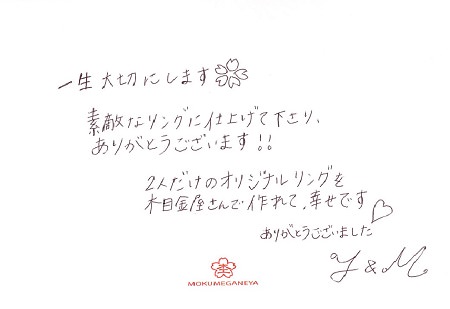 一生大切にします
素敵なリングに仕上げて下さり、
ありがとうございます!!
2人だけのオリジナルリングを
木目金屋さんで作れて、幸せです
ありがとうございました
Y & M
MOKUMEGANEYA